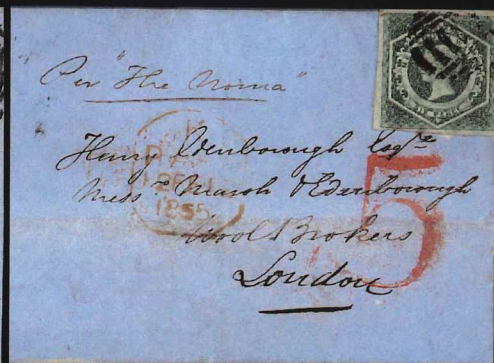 Per "The Norna"
Henry Edenborough Esqre
Messrs Marsh & Edenborough
Wool Brokers
London
5
1855